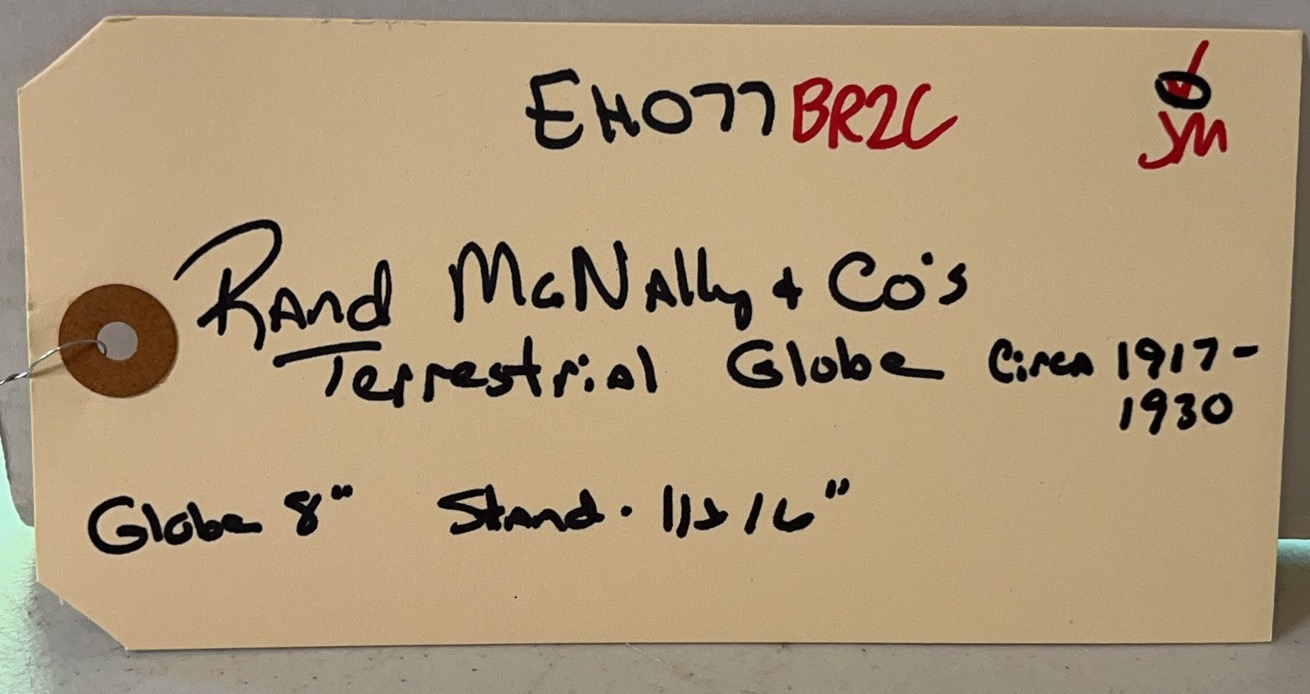 EH077BR2C
JM
Rand McNally & Co's
Terrestrial Globe Circa 1917-
1930
Globe 8" Stand.